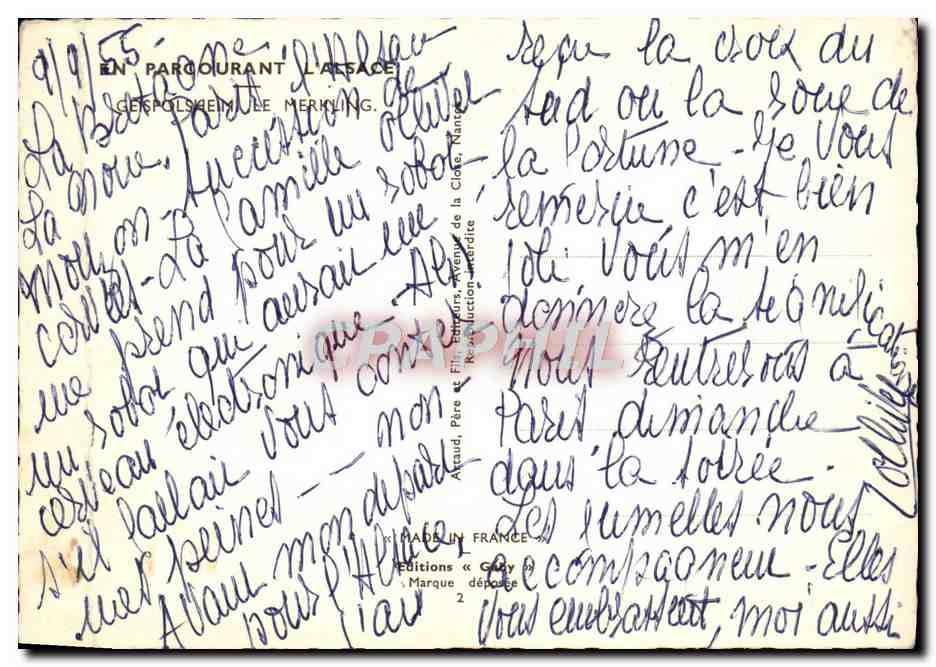 9/9/55
EN PARCOURANT L'ALSACE
GEISPOLSHEIM LE MERKLING.
La Bretagne
La noue. Part
mouson. succession de
corvées - La famille
me prend pour un robot
un robot qui aurait un
cerveau électronique. Ah!
s'il fallait vous conter
mes peines - non
Avant mon départ
pour l'Alsace,
j'ai
reçu la croix du
sud ou la roue de
la Fortune - Je vous
remercie c'est bien
joli vous m'en
donnerez la signification
nous rentrerons à
Paris dimanche
dans la soirée.
Les jumelles nous
accompagnent - Elles
vous embrassent, moi aussi
Artaud, Père et Fils, Editeurs, Avenue de la Close, Nantes
Reproduction interdite
« MADE IN FRANCE »
Editions « Gaby »
Marque déposée
2
CPAPHIL